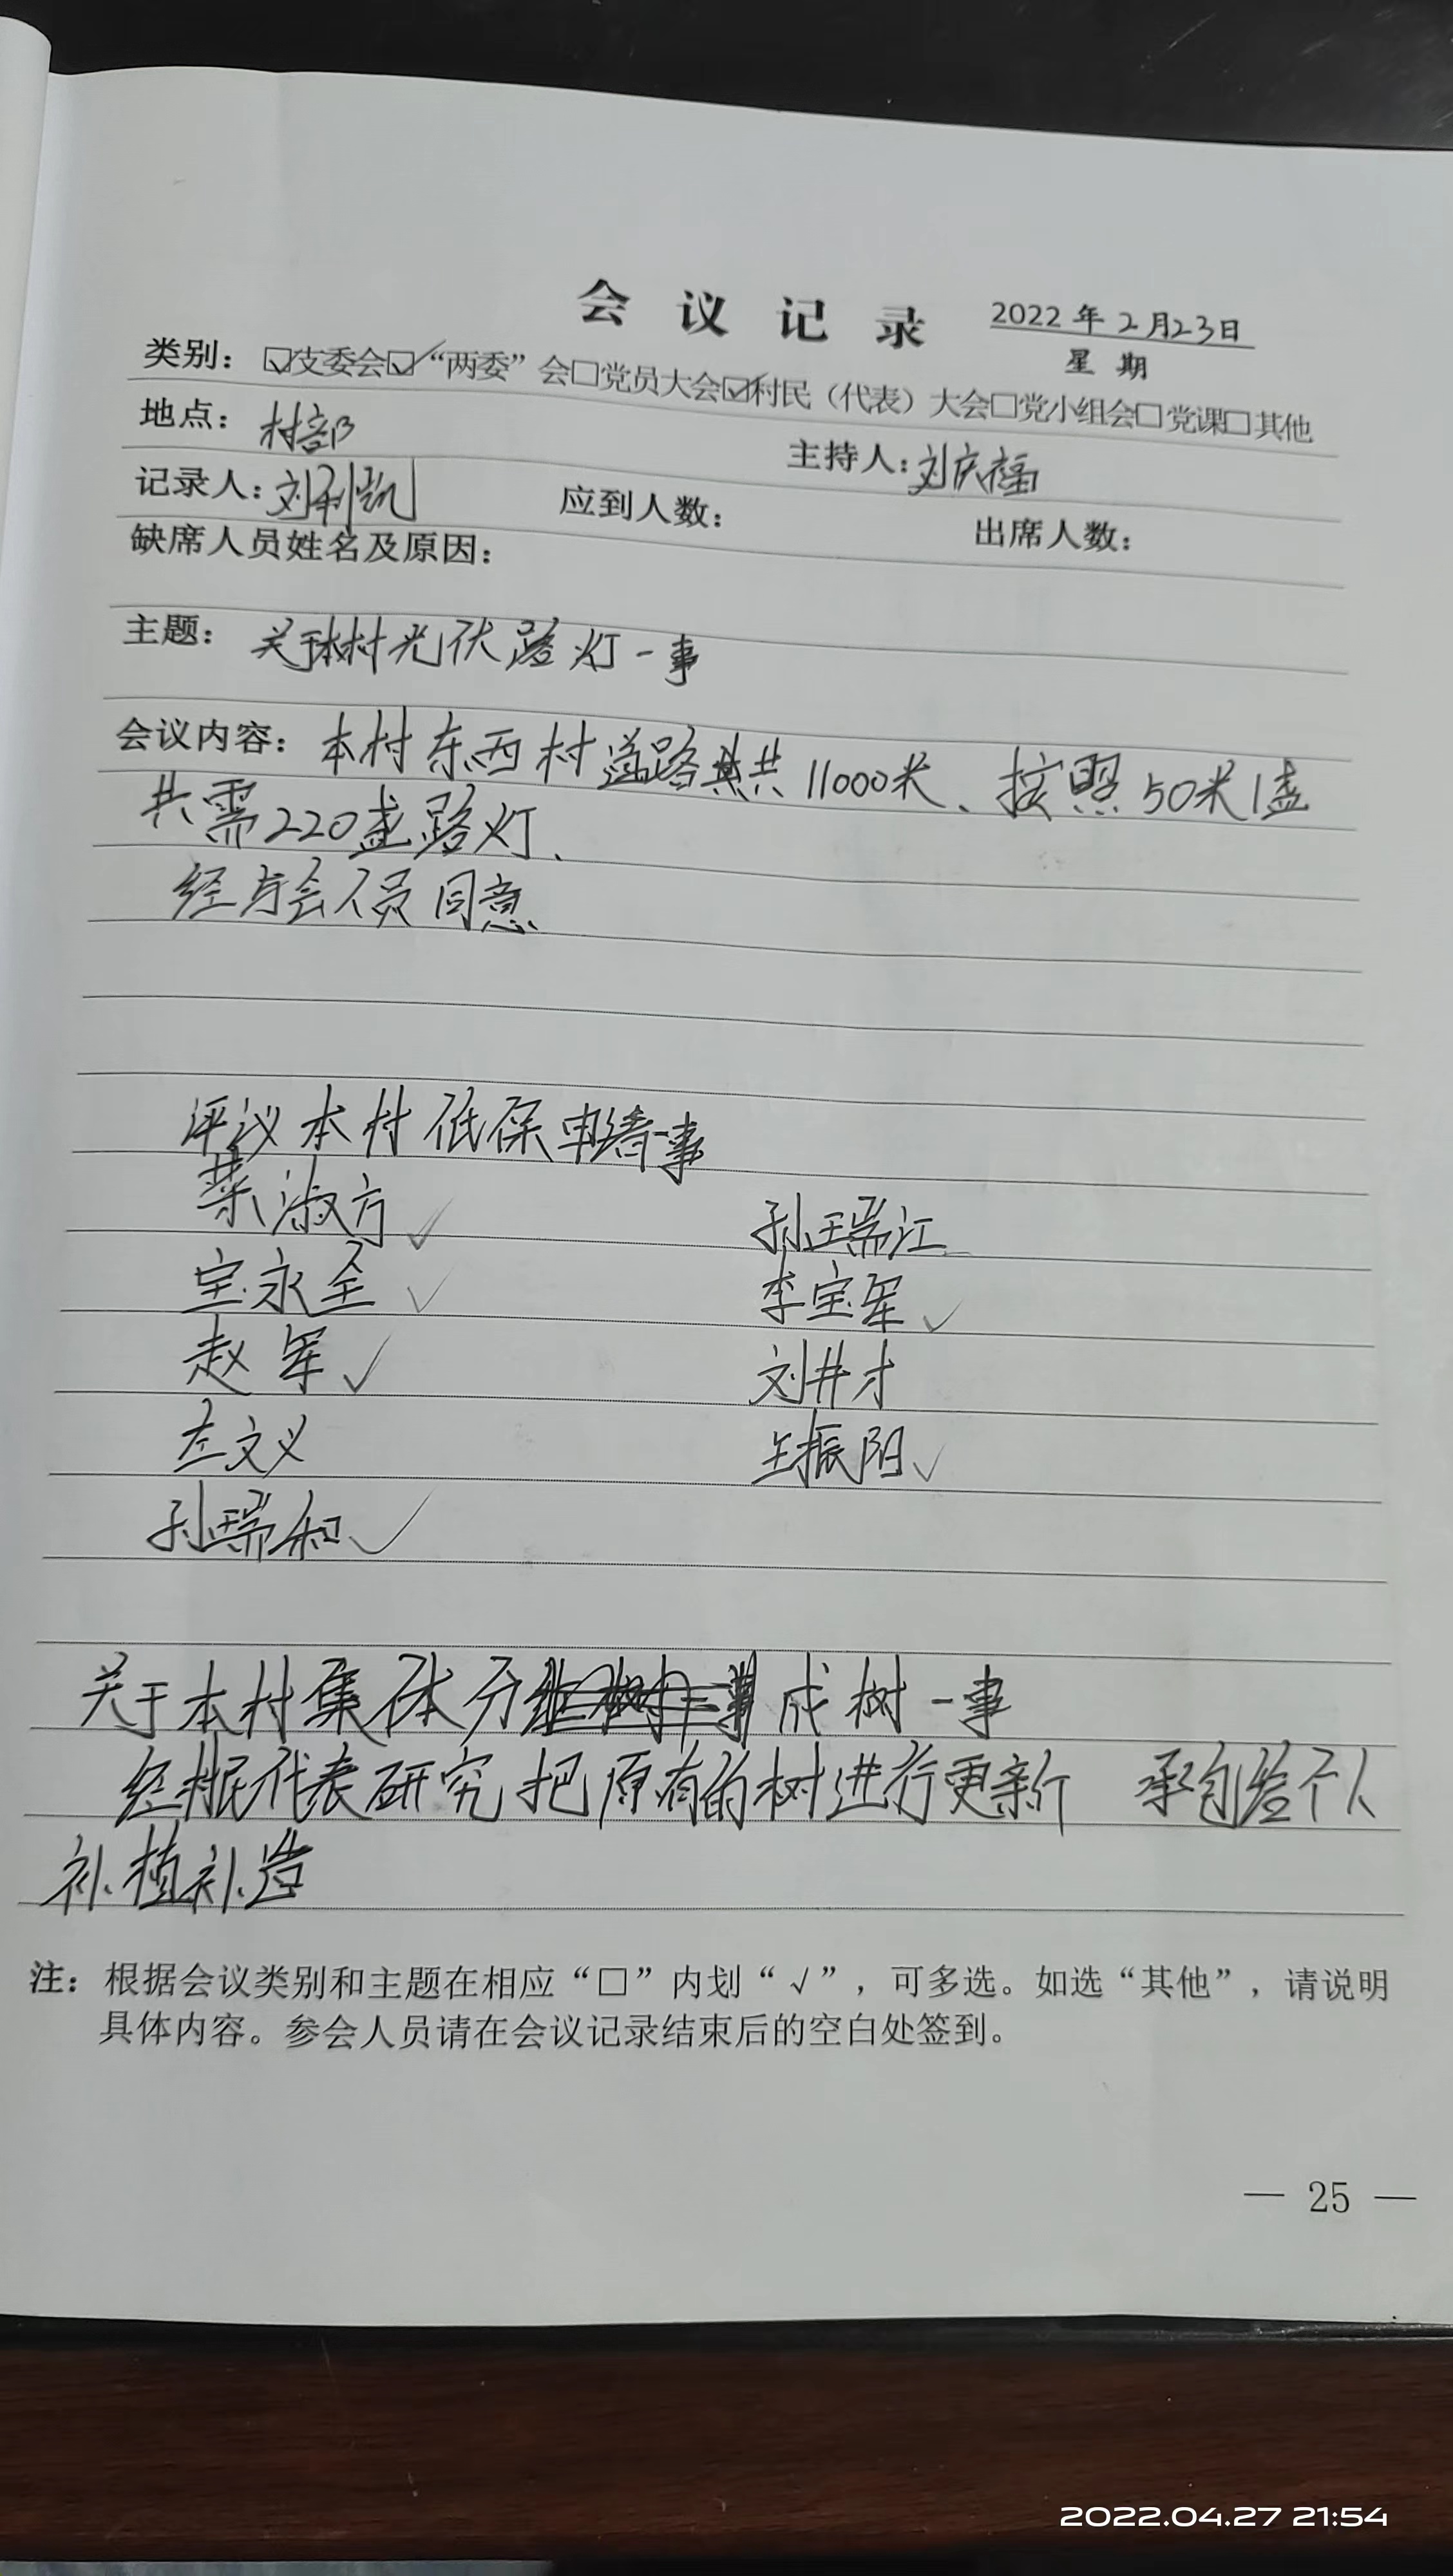 会议记录 2022年2月23日
星期
类别：☑支委会☑“两委”会□党员大会☑村民（代表）大会□党小组会□党课□其他
地点：村部 主持人：刘庆福
记录人：刘利凯 应到人数： 出席人数：
缺席人员姓名及原因：
主题：关于本村光伏路灯一事
会议内容：本村东西村道路共11000米、按照50米1盏
共需220盏路灯、
经与会人员同意
评议本村低保申请一事
淑方✓ 孙瑞江
宝永全✓ 李宝军✓
赵军✓ 刘井才
左文义 王振阳✓
孙瑞和✓
关于本村集体分成树一事
经村民代表研究把原有的树进行更新 承包给个人
补植补造
注：根据会议类别和主题在相应“□”内划“√”，可多选。如选“其他”，请说明
具体内容。参会人员请在会议记录结束后的空白处签到。
— 25 —
2022.04.27 21:54